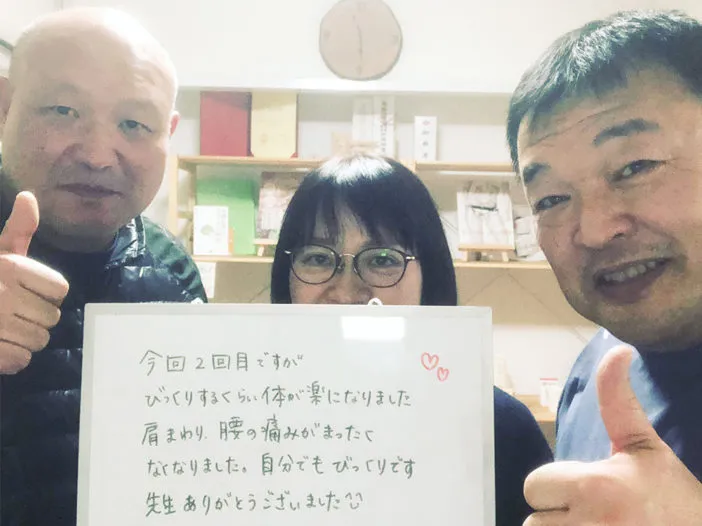 今回2回目ですが
びっくりするくらい体が楽になりました
肩まわり、腰の痛みがまったく
なくなりました。自分でもびっくりです
先生ありがとうございました^^